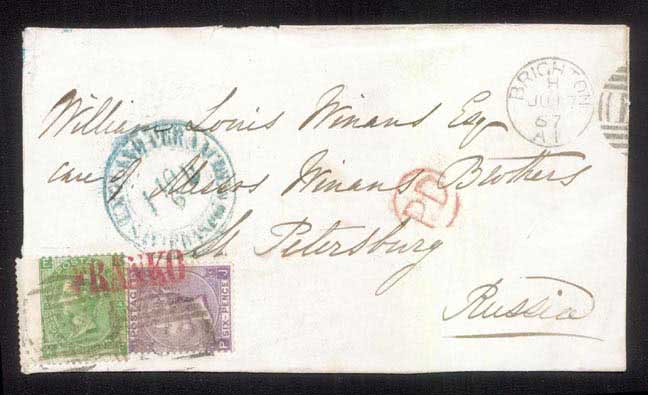 BRIGHTON
67
A1
William Louis Winans Esq
care of Messrs Winans Brothers
PD
St. Petersburg
FRANKO
POSTAGE
SIX-PENCE
P J
Russia